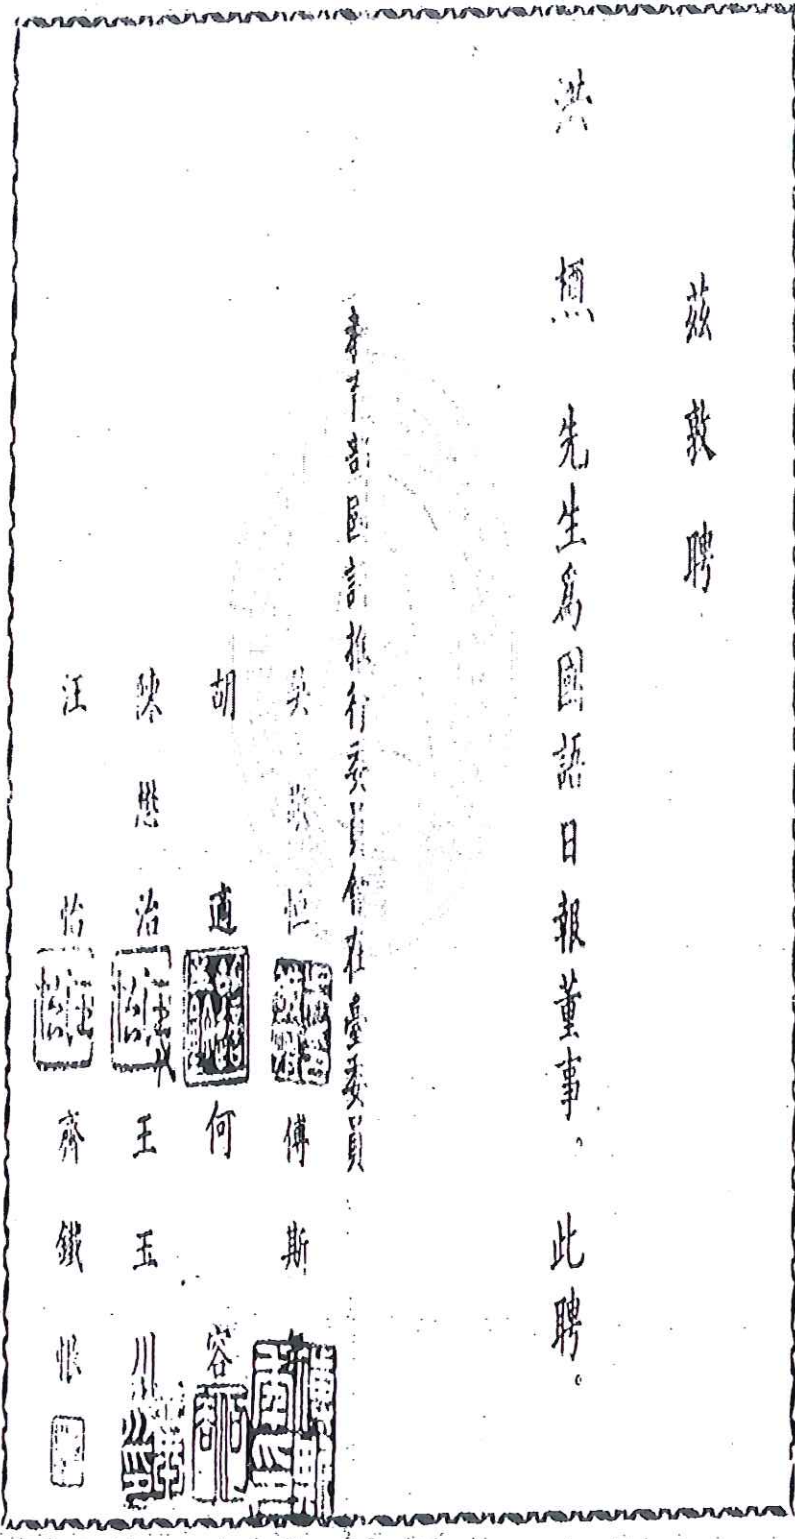 茲敦聘
洪槱先生為國語日報董事。此聘。
教育部國語推行委員會在臺委員
吳敬恒 傅斯年
胡適 何容
陳懋治 代 王玉川
汪怡 齊鐵恨